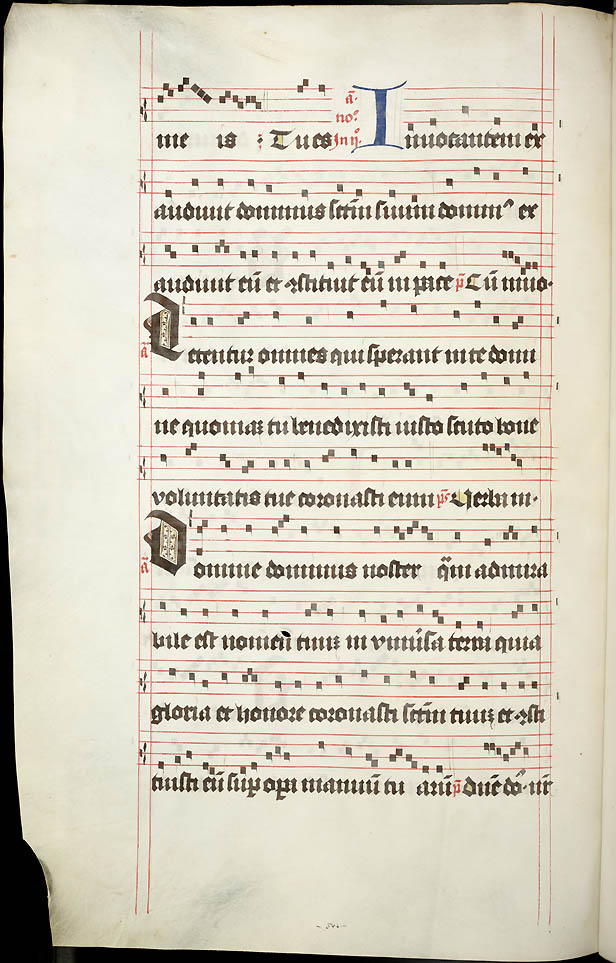 me is : Tu es In ij. no. a. Inuocantem ex
audiuit dominus sctm suum domin9 ex
audiuit eu et 9stituit eu in pace ps Cu inuo.
a Letentur omnes qui sperant in te domi
ne quoniaz tu benedixisti iusto scuto bone
voluntatis tue coronasti eum ps Verba m.
a Domine dominus noster qm admira
bile est nomen tuuz in vniusa terra quia
gloria et honore coronasti sctm tuuz et 9sti
tuisti eu sup opa manuu tu aru ps dne do. nr